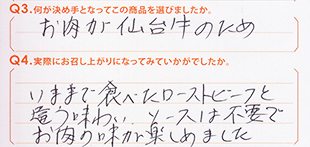 Q3.何が決め手となってこの商品を選びましたか。
お肉が仙台牛のため
Q4.実際にお召し上がりになってみていかがでしたか。
いままで食べたローストビーフと
違う味わい。ソースは不要で
お肉の味が楽しめました